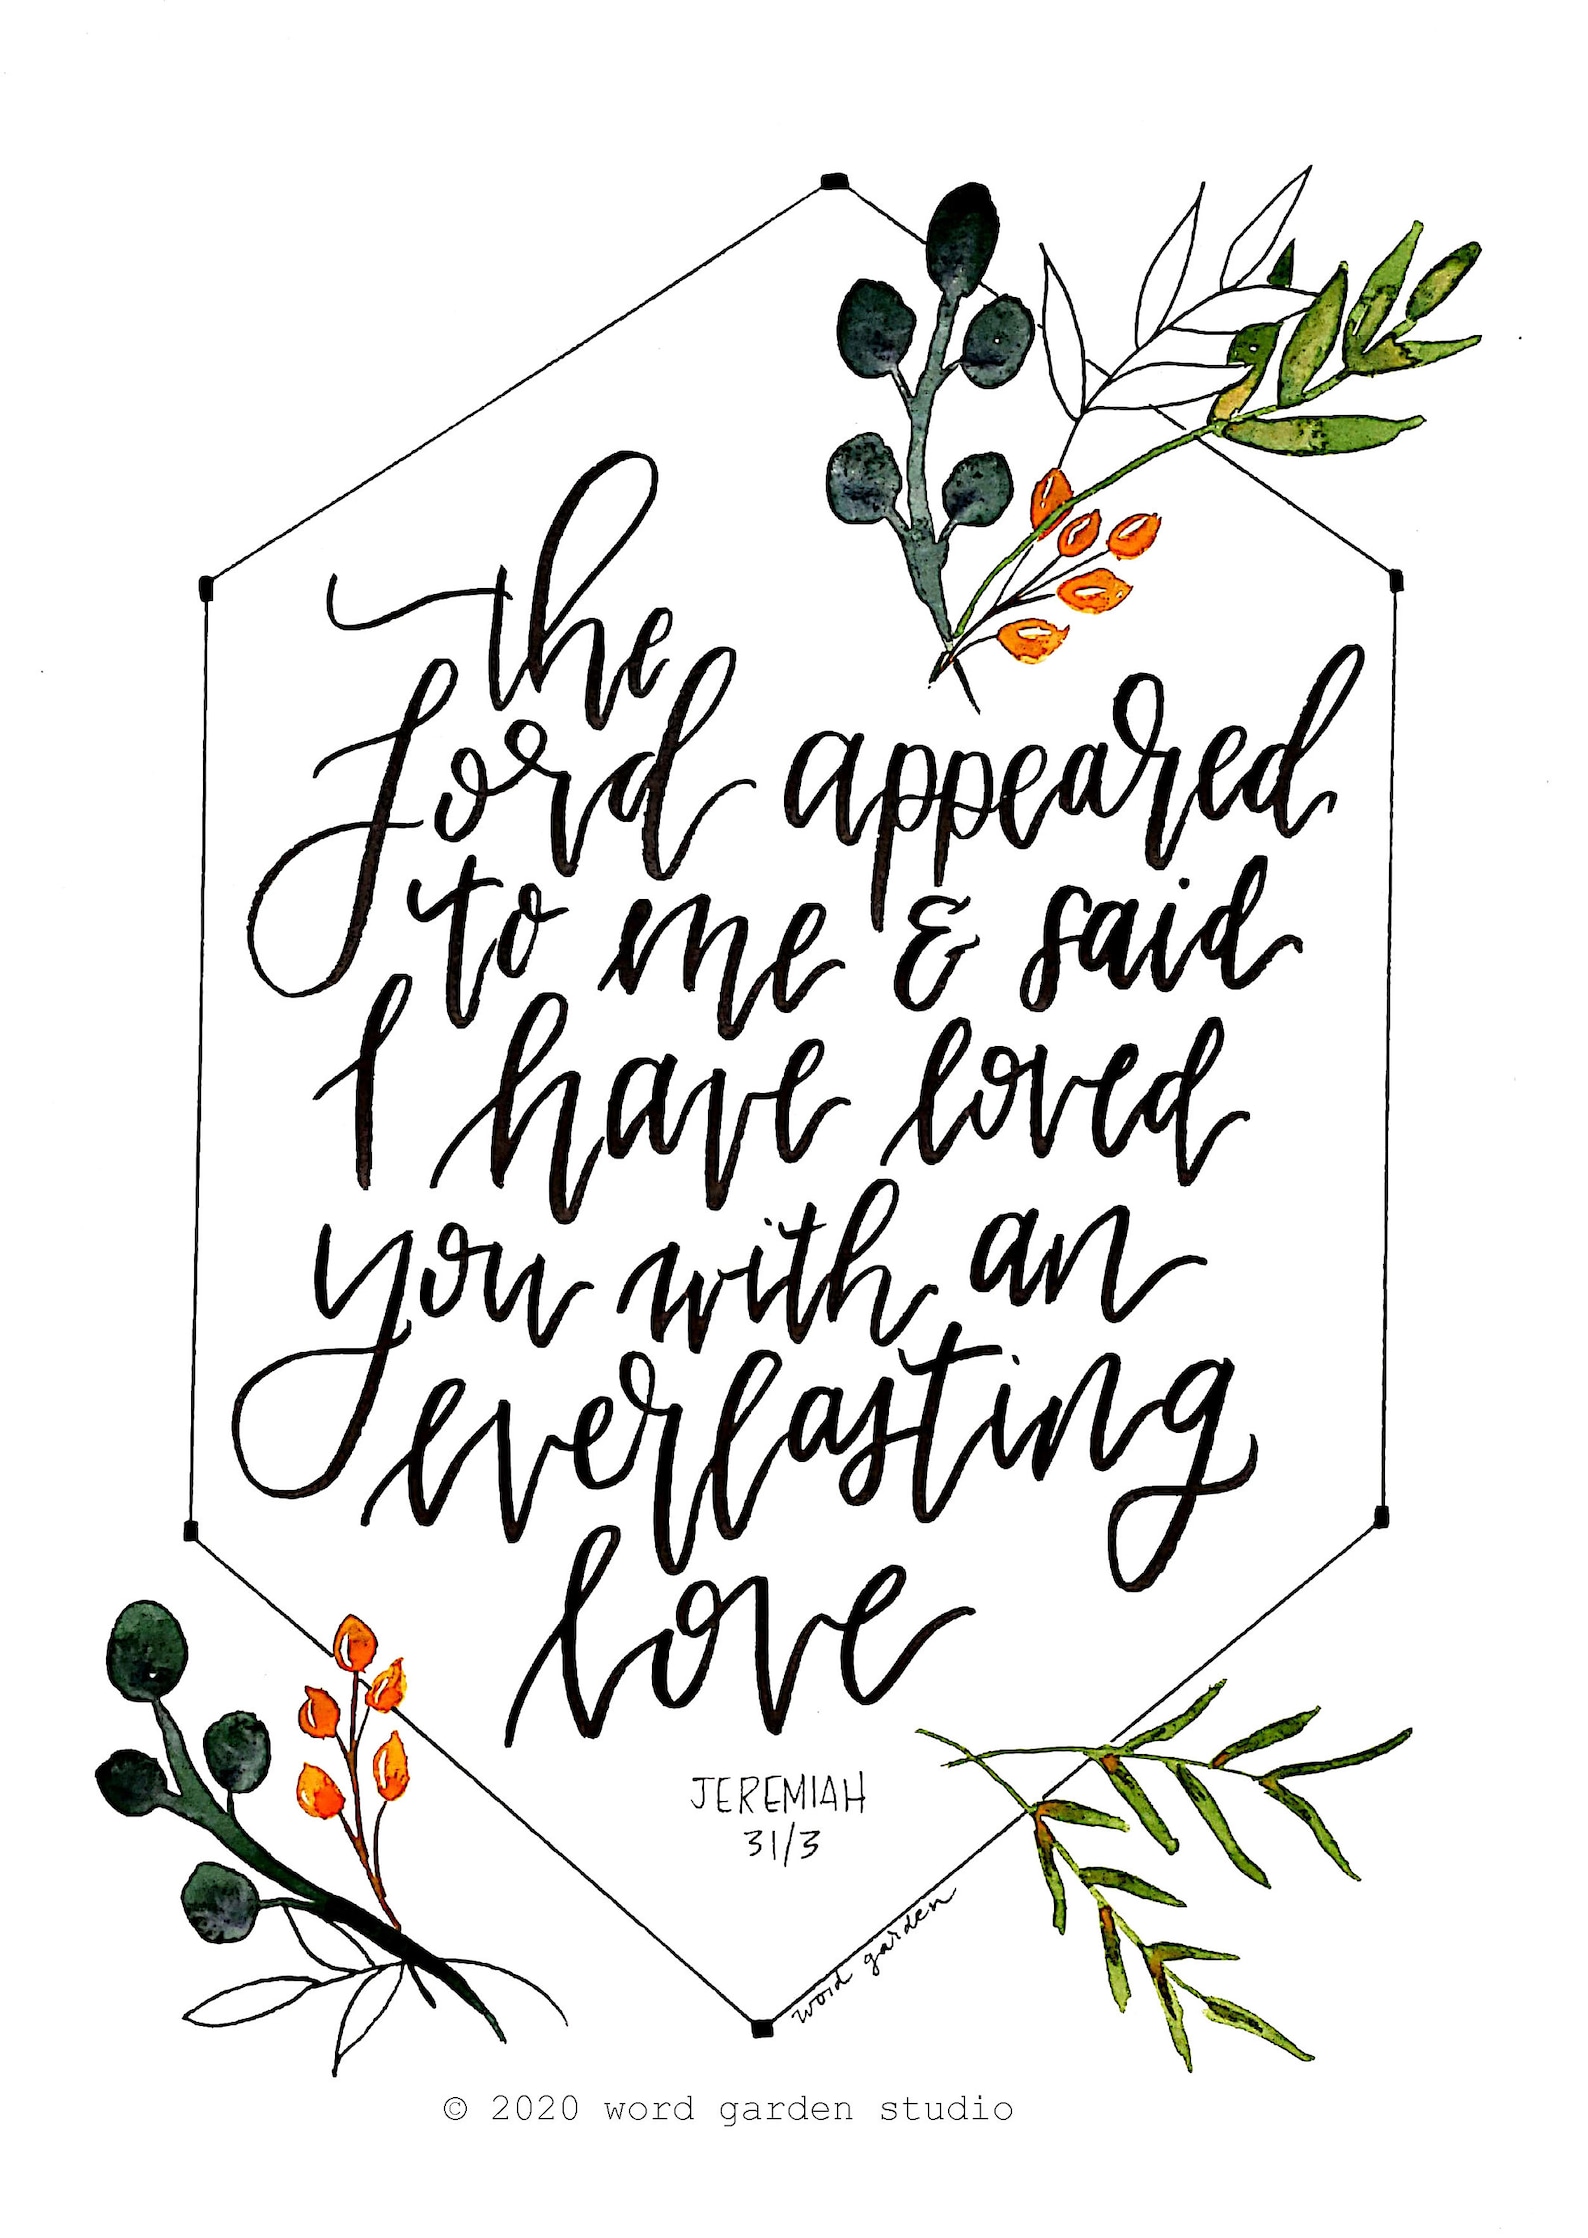 the
Lord appeared
to me & said
I have loved
you with an
everlasting
love
JEREMIAH
31/3
word garden
© 2020 word garden studio